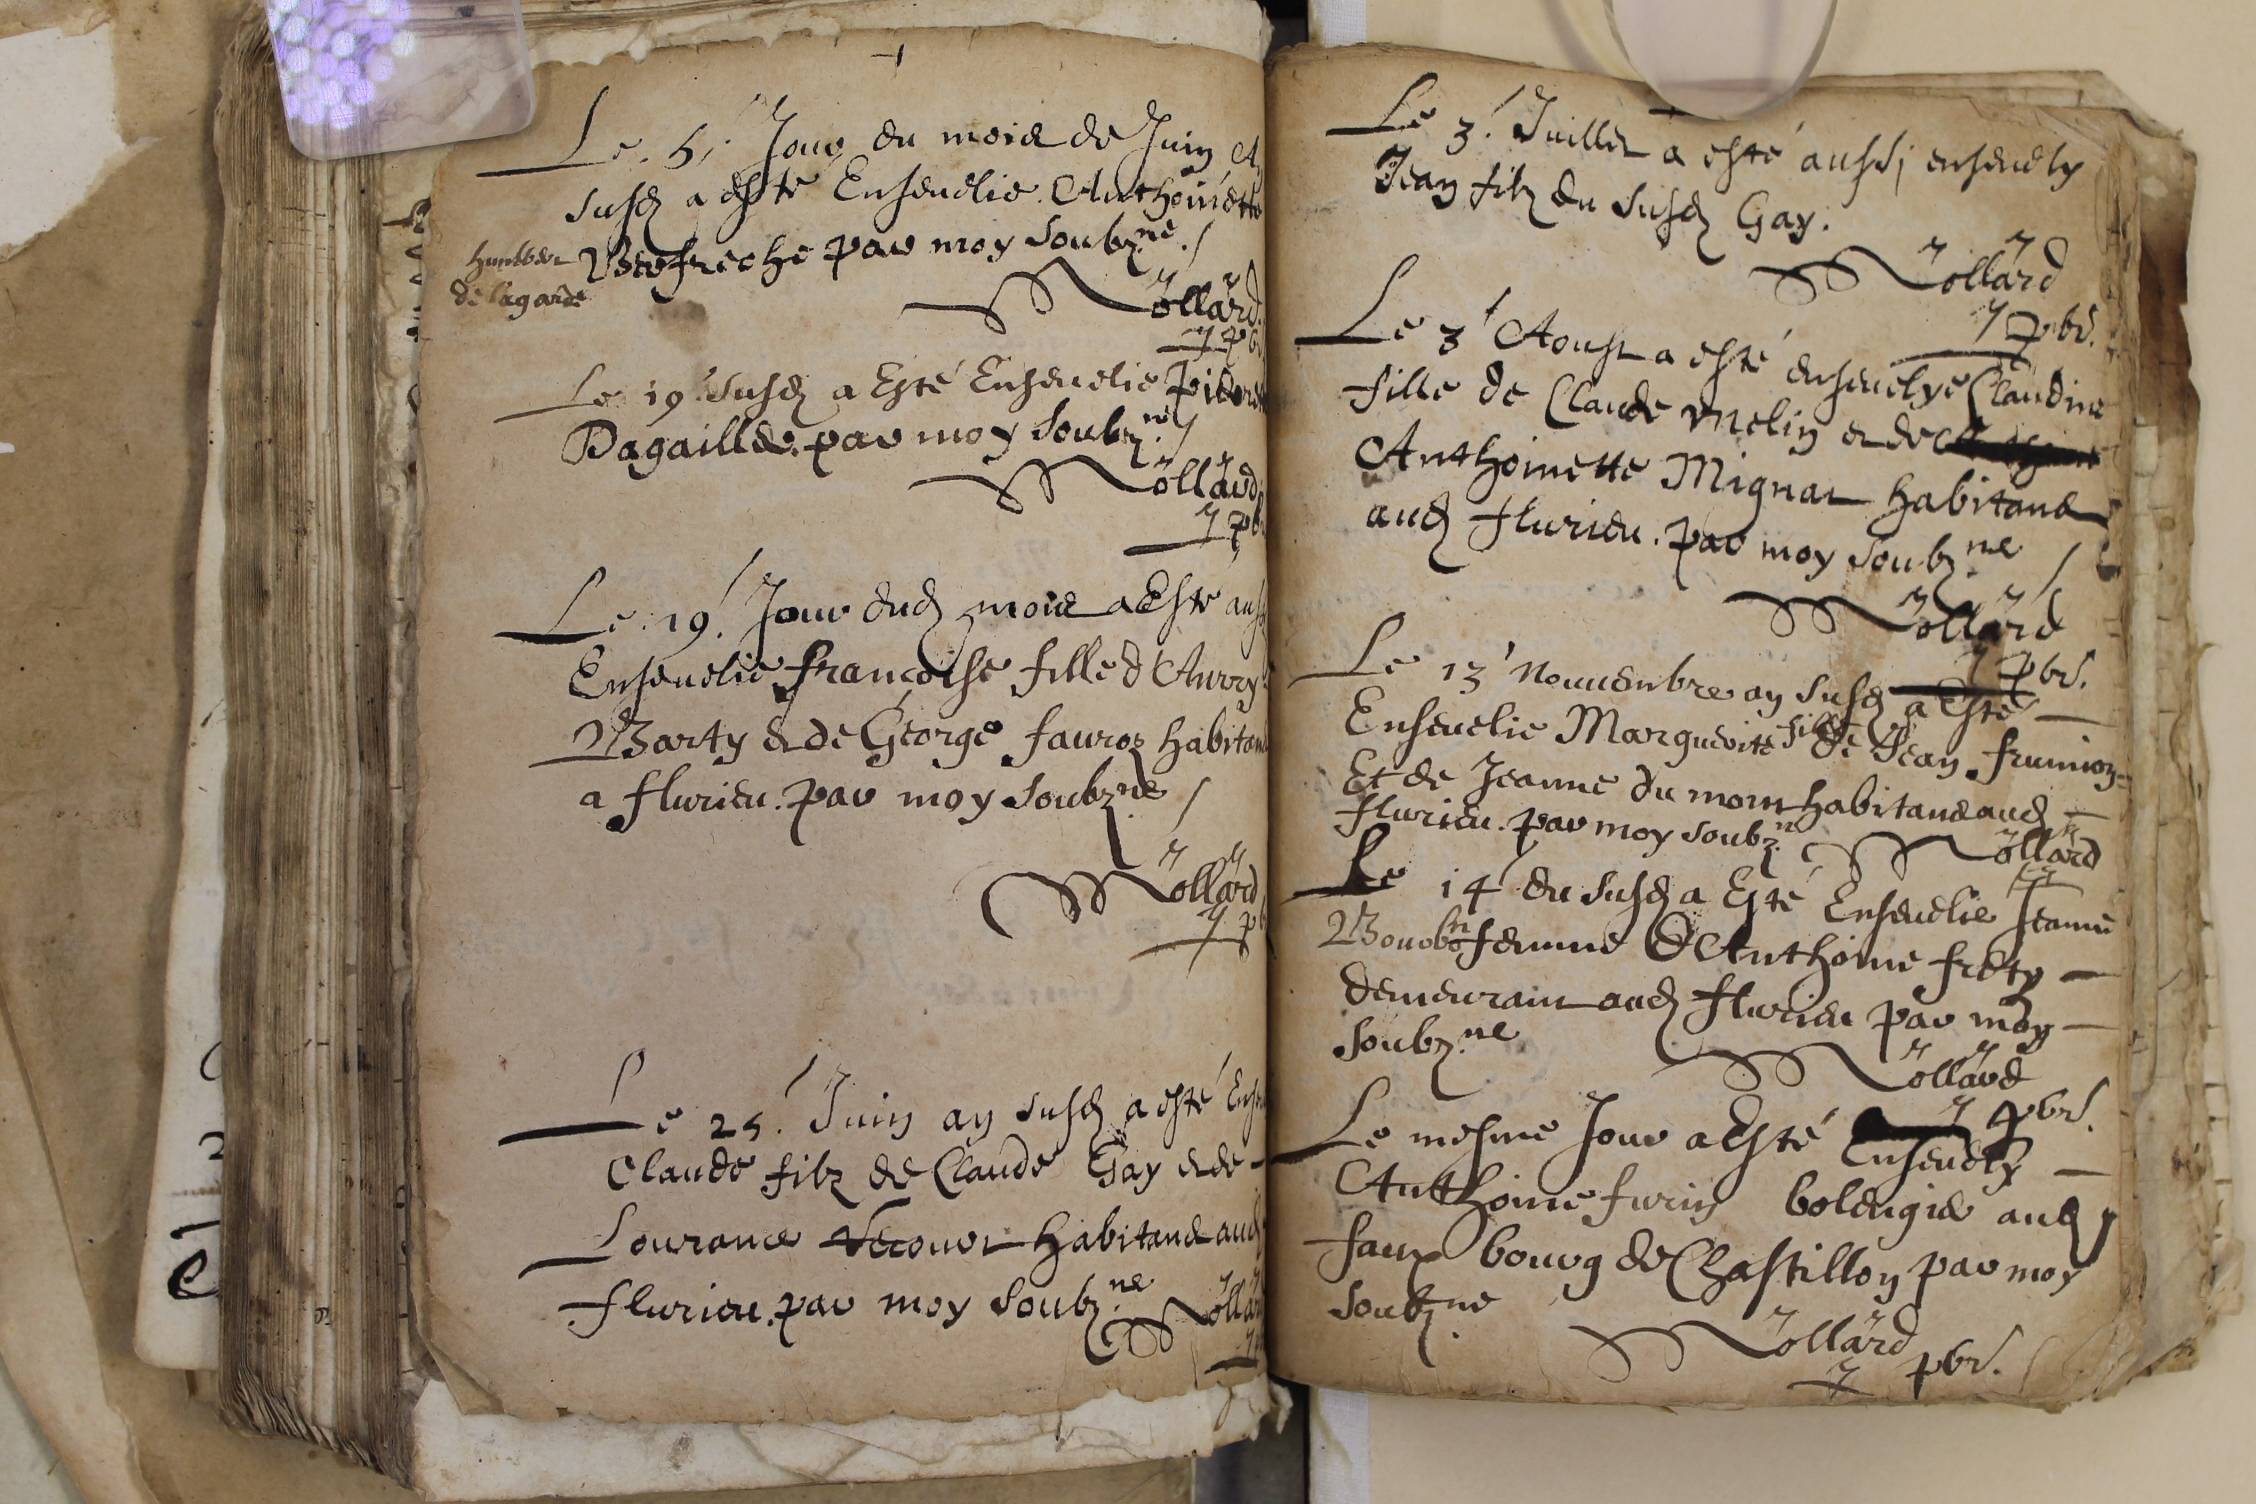 Le 5.' Jour du mois de Juin A
susd a esté Enseuelie Anthoinette
par moy soubz.ne
humber
de lagarde
Mollard
pb
Le 19.' susd a Esté Enseuelie
Dagailler par moy soubz.ne
Mollard
pb
Le 19.' Jour dud mois a Esté auss
Enseuelie francoise fille d'
Barty et de George fauroz habitan
a flurieu. par moy soubz.ne
Mollard
pb
Le 25.' Juin an susd a esté Ens
Claude filz de Claude Gay et de
Lourance habitans aud
flurieu. par moy soubz.ne Mollar
Le 3.' Juillet a esté aussi enseuely
Jean filz du susd Gay.
Mollard
pbr.
Le 3' Aoust a esté enseuelye Claudine
fille de Claude Melin et de
Anthoinette Mignat habitans
aud flurieu. par moy soubz.ne
Mollard
pbr.
Le 13' Nouuembre an susd a Esté
Enseuelie Marguerite fille de Jean
Et de Jeanne du mont habitans aud
flurieu. par moy soubz.ne Mollard
Le 14 du susd a Esté Enseuelie Jeanne
femme d'Anthoine frety
demeurant aud flurieu par moy
soubz.ne
Mollard
pbr.
Le mesme Jour a Esté Enseuely
Anthoine furin bolengier aud
faux bourg de Chastillon par moy
soubz.ne
Mollard
pbr.